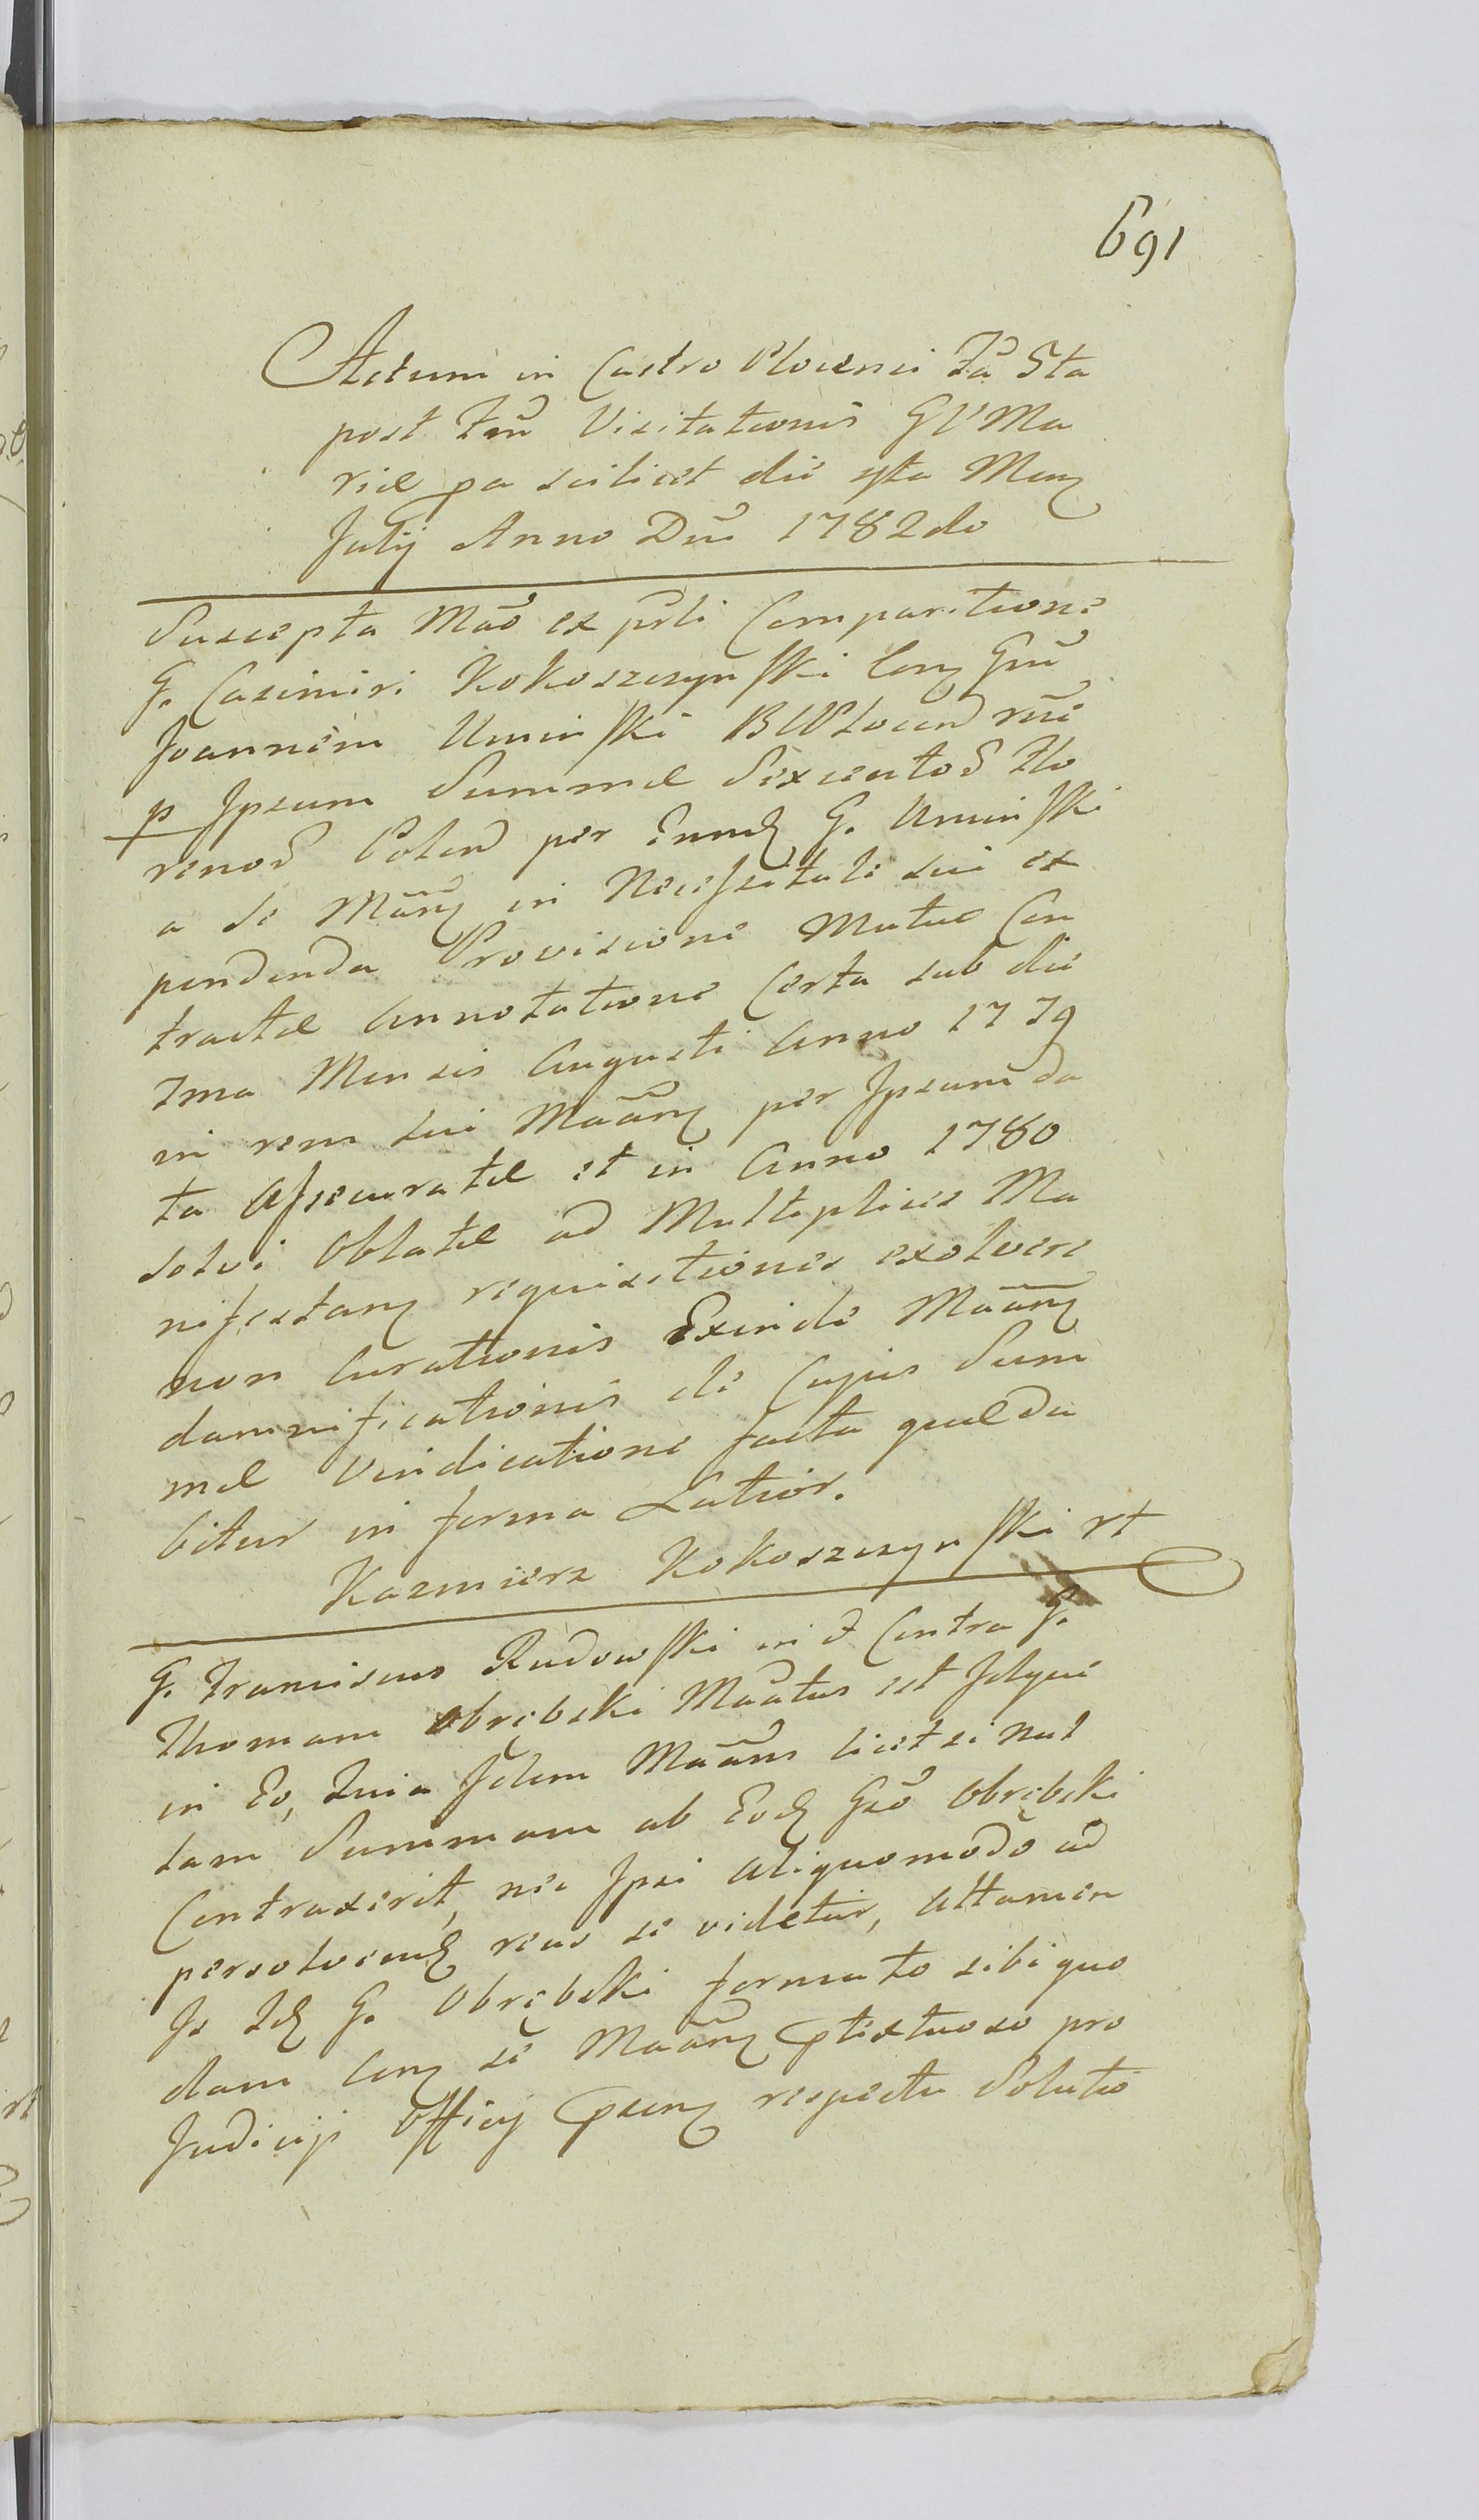 691
Actum in Castro Plocensi Fa 5ta
post Fm Visitationis GV Ma
riæ pa scilicet die 4ta Mens
Julij Anno Dni 1782do
Suscepta Mao ex psli Comparitione
G. Casimiri Kokoszczynski Con Gm
Joannem Uminski BWPlocen rne
p Ipsum Summæ Sexcentos Flo
renos Polen per Eund G. Uminski
a se Man in Necessitate sui ex
pendenda Provisione Mutuæ Con
tractæ Annotatione Certa sub die
7ma Mensis Augusti Anno 1779
in rem sui Maan per Ipsum da
ta Assecuratæ et in Anno 1780
solvi Oblatæ ad Multiplices Ma
nifestan requisitiones exolvere
non Curationis Exinde Maan
damnificationis de Cujus Sum
mæ Vindicatione facta quæ da
bitur in forma Latior.
Kazmierz Kokoszczynski rt
G. Franciscus Rudowski in & Contra G.
Thomam Obrębski Maatus est Idque
in Eo, Quia Idem Maans licet si nul
lam Summam ab Eod Gso Obrębski
Contraxerit, nec Ipsi Aliquomodo ad
persolvend reus se videtur, Attamen
Is Id G. Obrębski formato sibi quo
dam Con se Maan ptextuoso pro
Judicijs Officij psen respectu Solutio